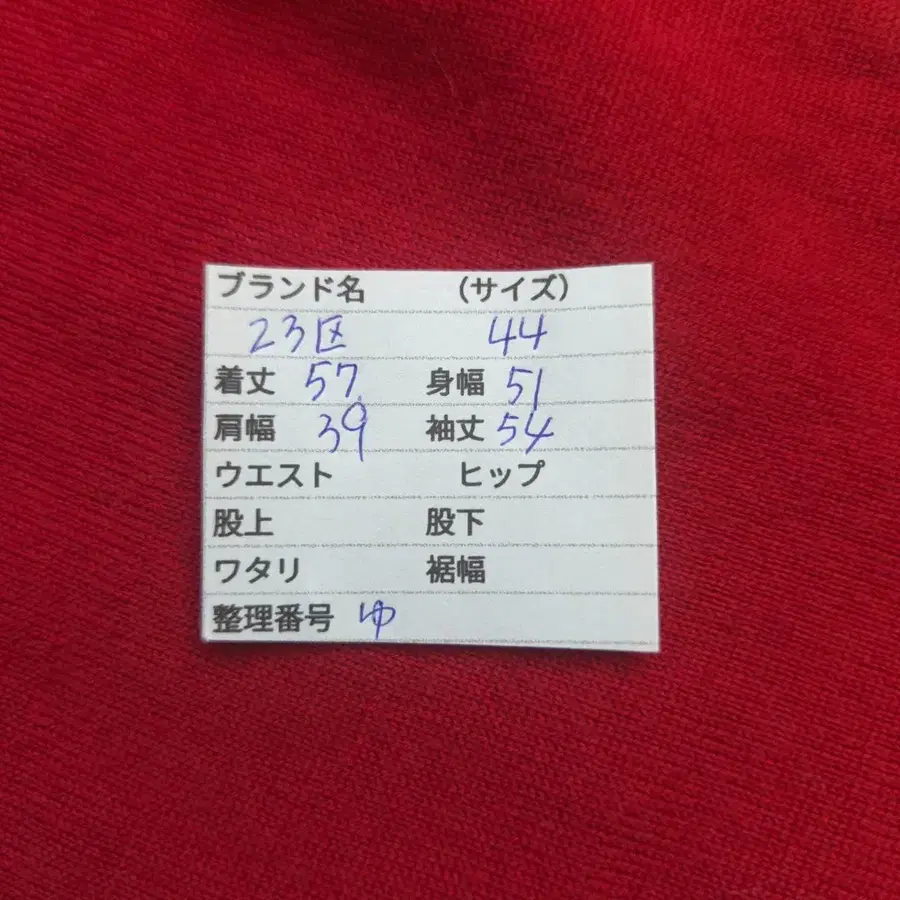 ブランド名 (サイズ)
23区 44
着丈 57 身幅 51
肩幅 39 袖丈 54
ウエスト ヒップ
股上 股下
ワタリ 裾幅
整理番号 ゆ